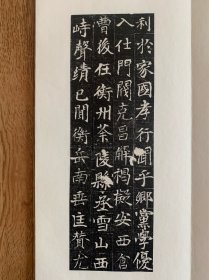 利於家國孝行聞乎鄉黨學優
入仕門閥克昌解褐擬安西倉
曹後任衡州荼陵縣丞雪山西
峙聲績已聞衡岳南臨匡贊尤